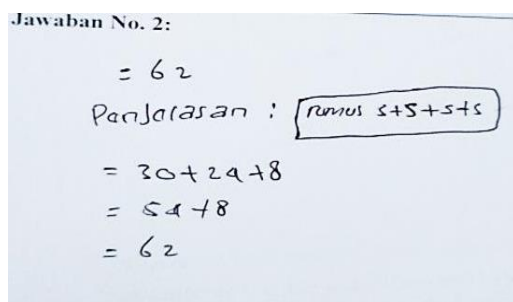 Jawaban No. 2:
= 62
Panjalasan : rumus s+s+s+s
= 30+24+8
= 54+8
= 62